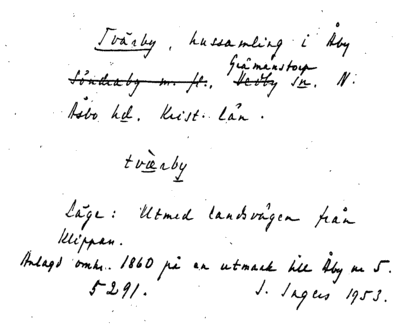 Tvärby, hussamling i Åby
Gråmanstorp
Söndraby m. fl., Vedby sn. N.
Åsbo hd. Krist. län.
tvärby
Läge: Utmed landsvägen från
Klippan.
Anlagd omkr. 1860 på en utmark till Åby nr 5.
5291. I. Ingers 1953.